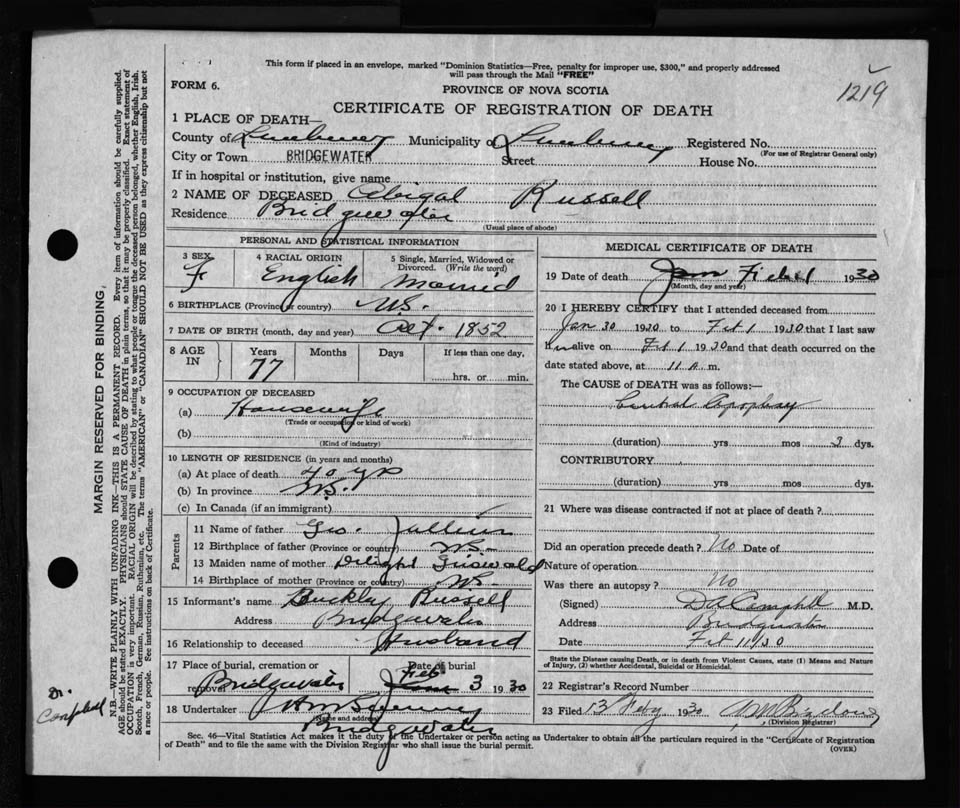 This form if placed in an envelope, marked "Dominion Statistics—Free, penalty for improper use, $300," and properly addressed
will pass through the Mail "FREE"
FORM 6.
PROVINCE OF NOVA SCOTIA
1219
CERTIFICATE OF REGISTRATION OF DEATH
1 PLACE OF DEATH—
County of Lunenburg Municipality of Lunenburg Registered No.
(For use of Registrar General only)
City or Town BRIDGEWATER Street House No.
If in hospital or institution, give name
2 NAME OF DECEASED Abigal Russell
Residence Bridgewater
(Usual place of abode)
PERSONAL AND STATISTICAL INFORMATION
3 SEX F
4 RACIAL ORIGIN English
5 Single, Married, Widowed or Divorced. (Write the word) Married
6 BIRTHPLACE (Province or country) NS.
7 DATE OF BIRTH (month, day and year) 1852
8 AGE IN Years 77 Months Days If less than one day, hrs. or min.
9 OCCUPATION OF DECEASED
(a) Housewife
(Trade or occupation or kind of work)
(b)
(Kind of industry)
10 LENGTH OF RESIDENCE (in years and months)
(a) At place of death 70 yrs
(b) In province NS.
(c) In Canada (if an immigrant)
Parents
11 Name of father Geo.
12 Birthplace of father (Province or country) NS.
13 Maiden name of mother Delight Griswald
14 Birthplace of mother (Province or country) NS.
15 Informant's name Buckly Russell
Address Bridgewater
16 Relationship to deceased Husband
17 Place of burial, cremation or removal Bridgewater Date of burial Feb 3 1930
18 Undertaker
(Name and address)
Bridgewater
MEDICAL CERTIFICATE OF DEATH
19 Date of death 1930
(Month, day and year)
20 I HEREBY CERTIFY that I attended deceased from
Jan 30 1930 to Feb 1 1930 that I last saw
her alive on Feb 1 1930 and that death occurred on the
date stated above, at 11 A m.
The CAUSE of DEATH was as follows:—
(duration) yrs mos 3 dys.
CONTRIBUTORY
(duration) yrs mos dys.
21 Where was disease contracted if not at place of death?
Did an operation precede death? No Date of
Nature of operation
Was there an autopsy? No
(Signed) D A Campbell M.D.
Address Bridgewater
Date Feb 11/30
State the Disease causing Death, or in death from Violent Causes, state (1) Means and Nature of Injury, (2) whether Accidental, Suicidal or Homicidal.
22 Registrar's Record Number
23 Filed 13 Feby 1930
(Division Registrar)
Sec. 46—Vital Statistics Act makes it the duty of the Undertaker or person acting as Undertaker to obtain all the particulars required in the "Certificate of Registration
of Death" and to file the same with the Division Registrar who shall issue the burial permit.
(OVER)
MARGIN RESERVED FOR BINDING.
N.B.—WRITE PLAINLY WITH UNFADING INK—THIS IS A PERMANENT RECORD. Every item of information should be carefully supplied.
AGE should be stated EXACTLY. PHYSICIANS should STATE CAUSE OF DEATH in plain terms, so that it may be properly classified. Exact statement of
OCCUPATION is very important. RACIAL ORIGIN will be described by stating to what people or tongue the deceased person belonged, whether English, Irish,
Scotch, French, German, Russian, Ruthenian, etc. The terms "AMERICAN" or "CANADIAN" SHOULD NOT BE USED as they express citizenship but not
a race or people. See instructions on back of Certificate.
Dr.
Campbell